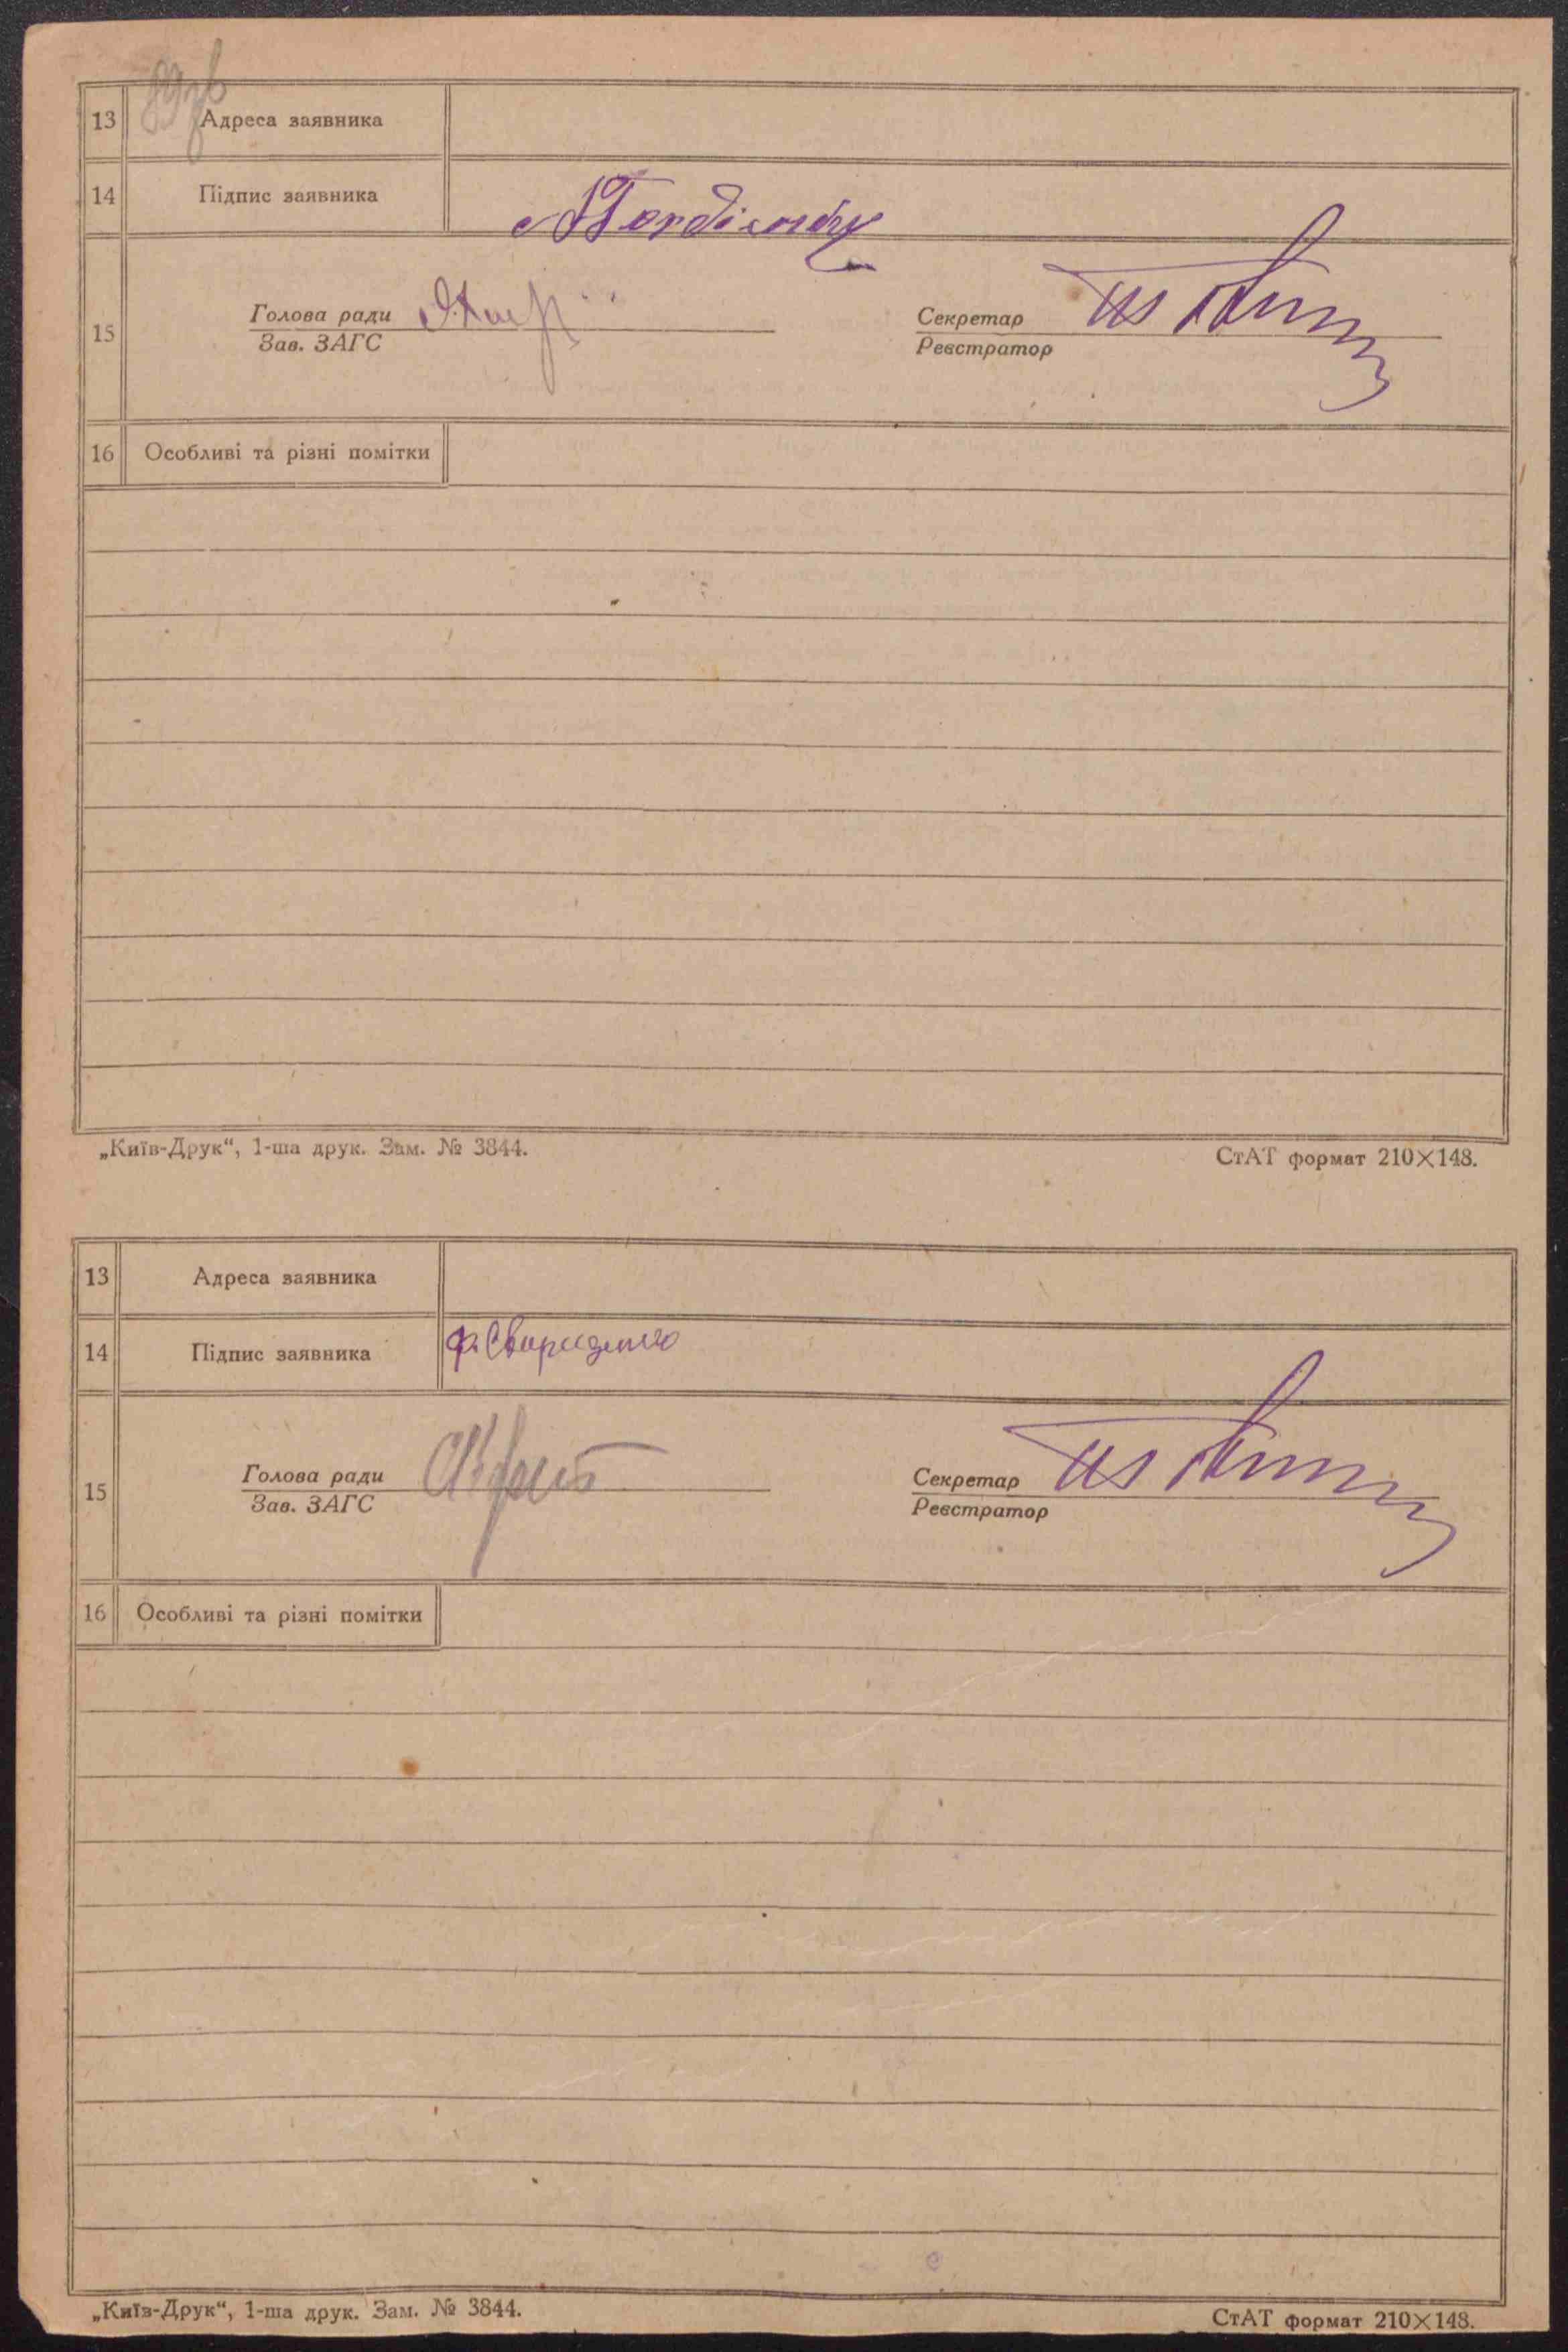 13 Адреса заявника
14 Підпис заявника
15 Голова ради Секретар
Зав. ЗАГС Реєстратор
16 Особливі та різні помітки
„Київ-Друк“, 1-ша друк. Зам. № 3844. СтАТ формат 210×148.
13 Адреса заявника
14 Підпис заявника Ф. Свириденко
15 Голова ради Секретар
Зав. ЗАГС Реєстратор
16 Особливі та різні помітки
„Київ-Друк“, 1-ша друк. Зам. № 3844. СтАТ формат 210×148.